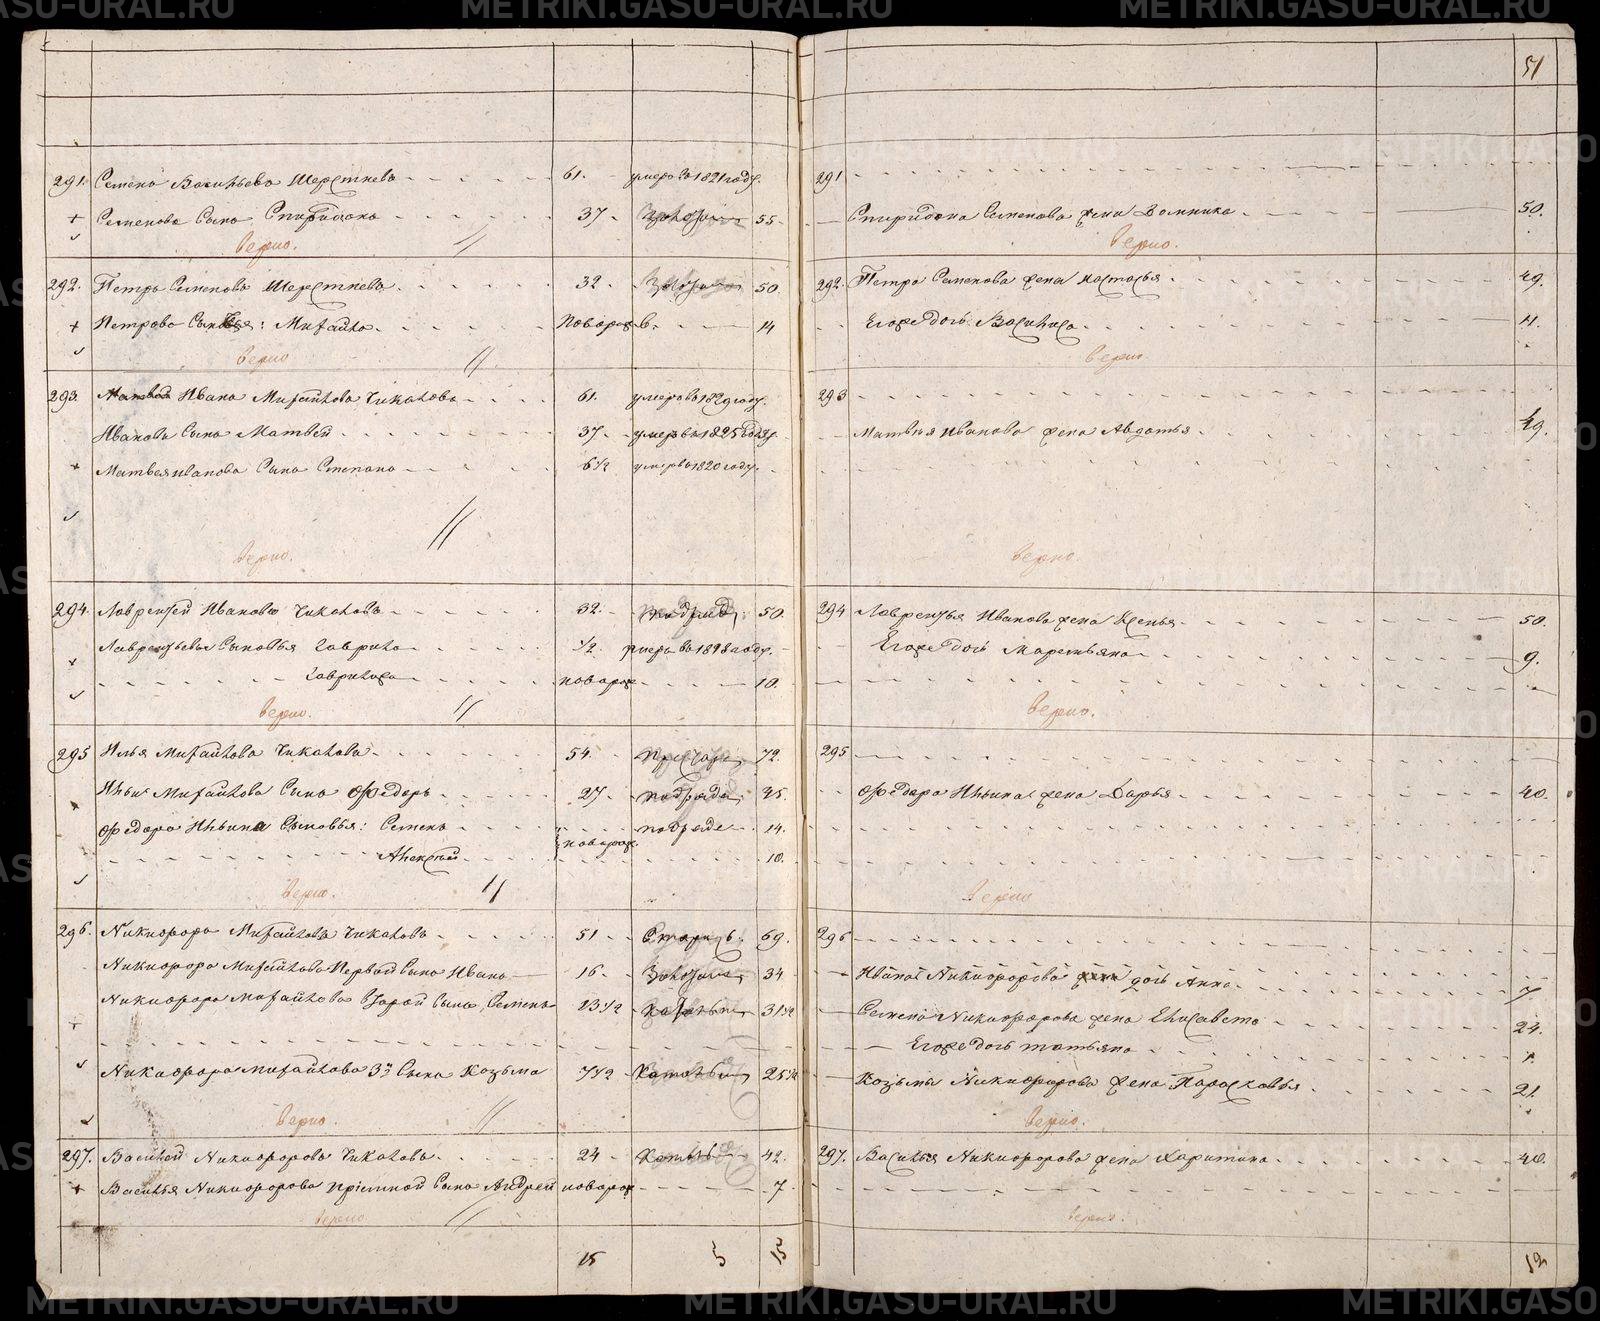 METRIKI.GASU-URAL.RU
51
291. Семенъ Васильевъ Шерстневъ 61. умеръ въ 1821 году.
Семеновъ Сынъ Спиридонъ 37 55
верно.
292. Петръ Семеновъ Шерстневъ 32. 50.
Петровы Сыновья: Михайло новорож. 14
верно
293. Иванъ Михайловъ Чикаловъ 61. умеръ въ 1829 году.
Ивановъ Сынъ Матвей 37. умеръ въ 1825 году.
Матвея Иванова Сынъ Степанъ 6 1/2 умеръ въ 1820 году.
верно.
294. Лаврентей Ивановъ Чикаловъ 32. 50.
Лаврентьевы Сыновья Гаврило 1/2. умеръ въ 1818 году.
новорож 10.
верно.
295 Илья Михайловъ Чикаловъ 54. 72.
Ильи Михайлова Сынъ Федоръ 27 45.
Федора Ильина Сыновья: Семенъ 14.
Алексей новорож. 10.
верно.
296. Никифоръ Михайловъ Чикаловъ 51 69.
Никифора Михайлова Первой Сынъ Иванъ 16 34
Никифора Михайлова Второй Сынъ Семенъ 13 1/2 31 1/2
Никифора Михайлова 3й Сынъ Козьма 7 1/2 25 1/2
верно.
297. Василей Никифоровъ Чикаловъ 24 42.
Василья Никифорова приемной Сынъ Андрей новорож 7
верно
15 5 15
291
Спиридона Семенова жена Домника 50.
верно.
292. Петра Семенова жена Настасья 49.
Его же дочь Василиса 11.
верно
293
Матвея Иванова жена Авдотья 49.
верно.
294 Лаврентья Иванова жена Ксенья 50.
Его же дочь Маремьяна 9.
верно.
295
Федора Ильина жена Дарья 40.
верно
296
Ивана Никифорова дочь Анна 7
Семена Никифорова жена Елисавета 24.
Его же дочь Татьяна 1.
Козьмы Никифорова жена Парасковья 21.
верно.
297. Василья Никифорова жена Харитина 40.
верно.
12
METRIKI.GASU-URAL.RU